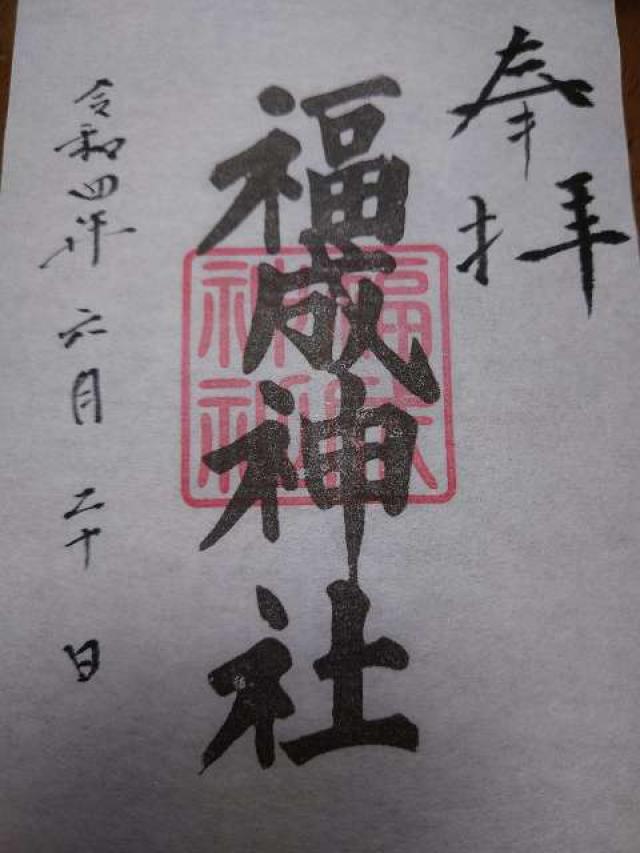 奉拝
福成神社
福成神社
令和四年六月二十日